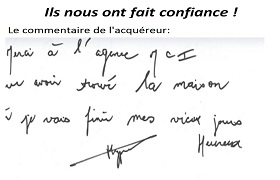 Ils nous ont fait confiance !
Le commentaire de l'acquéreur:
Merci à l'agence M C I
avoir trouvé la maison
je vais finir mes vieux jours
Heureux